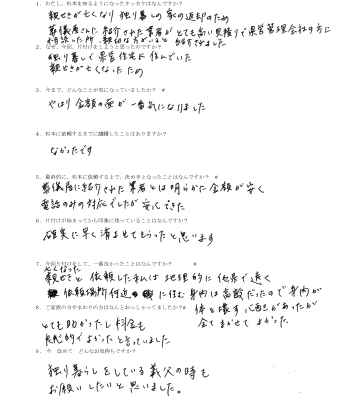 1、わたし、杉本を知るようになったキッカケはなんですか?
親せきが亡くなり 独り暮しの家の返却のため
葬儀屋さんに紹介された業者がとても高い見積りで県営管理会社の方に
相談した所 親切な方がいると 紹介されました
2、なぜ、今回、片付けをしようと思ったのですか?
独り暮しで県営住宅に住んでいた
親せきが亡くなったため
3、今まで、どんなことが気になっていましたか? #
やはり金額の面が一番気になりました
4、杉本に依頼するまでに躊躇したことはありますか?
なかったです
5、最終的に、杉本に依頼する上で、決め手となったことはなんですか? #
葬儀屋に紹介された業者とは明らかに金額が安く
電話のみの対応でしたが安心できた
6、片付けが始まってから印象に残っていることはなんですか?
確実に早く済ませてもらったと思います
7、今回片付けをして、一番良かったことはなんですか? #
亡くなった
親せきと依頼した私は地理的に他県で遠く
依頼場所付近に住む身内は高齢だったので身内が
体を壊す心配があったが
全てまかせてよかった
8、ご家族の方やまわりの方はなんとおっしゃってましたか?
とても助かったし料金も
良心的でよかったと言っていました
9、今 改めて どんなお気持ちですか?
独り暮らしをしている義父の時も
お願いしたいと思いました。